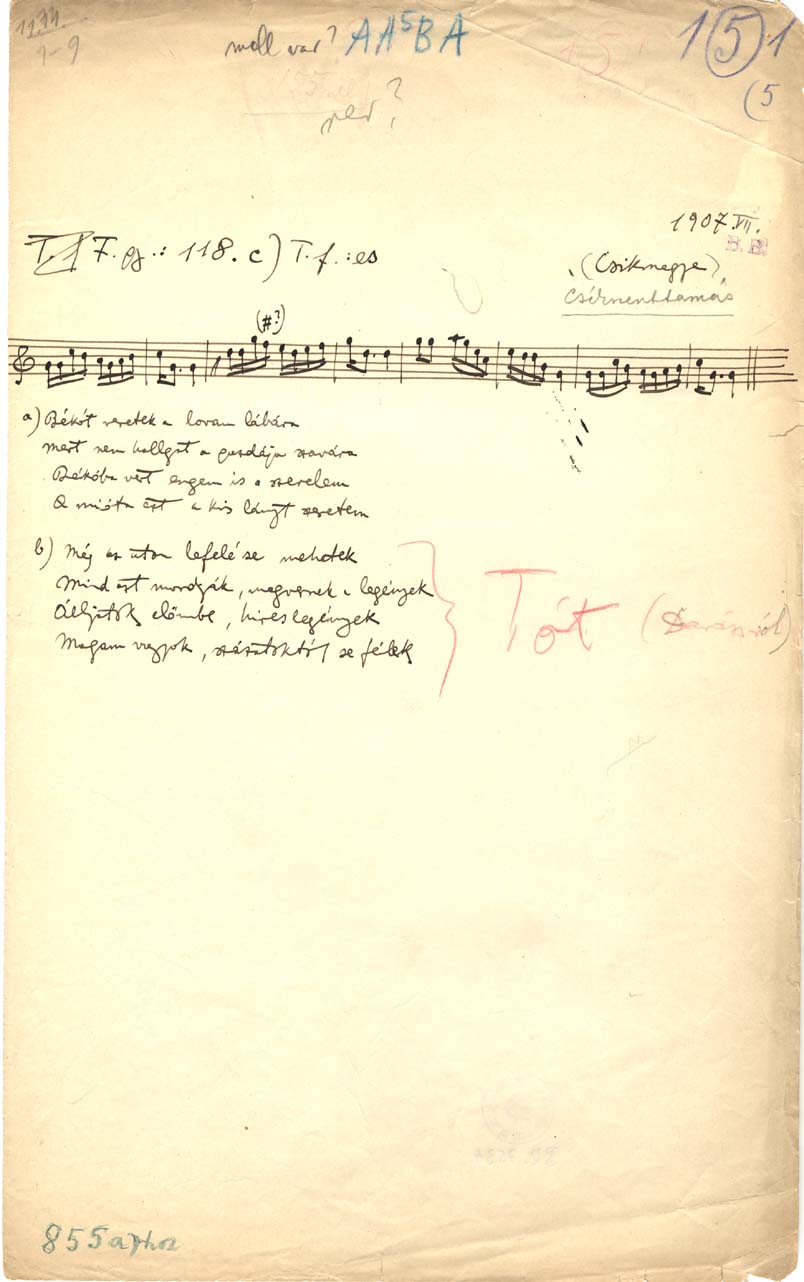 1–9
moll var? AA⁵BA
1(5).1
(5
1907.VII.
B. B.
F. gy.: 118. c) T. f.: es
(Csikmegye)
Csikszenttamás
(#?)
a) Békót veretek a lovam lábára
mert nem hallgat a gazdája szavára
Békóba vert engem is a szerelem
A mióta ezt a kis lányt szeretem
b) Még az uton lefelé se mehetek
Mind azt mondják, megvernek a legények
Álljatok előmbe, hires legények
Magam vagyok, százatoktól se félek
Tót
855a)